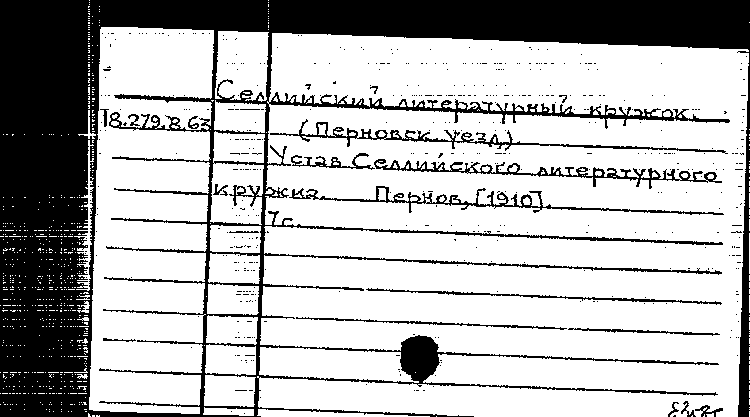 Селлийский литературный кружок.
18.279.8.63 (Перновск. уезд).
Устав Селлийского литературного
кружка. Пернов, [1910].
7 с.